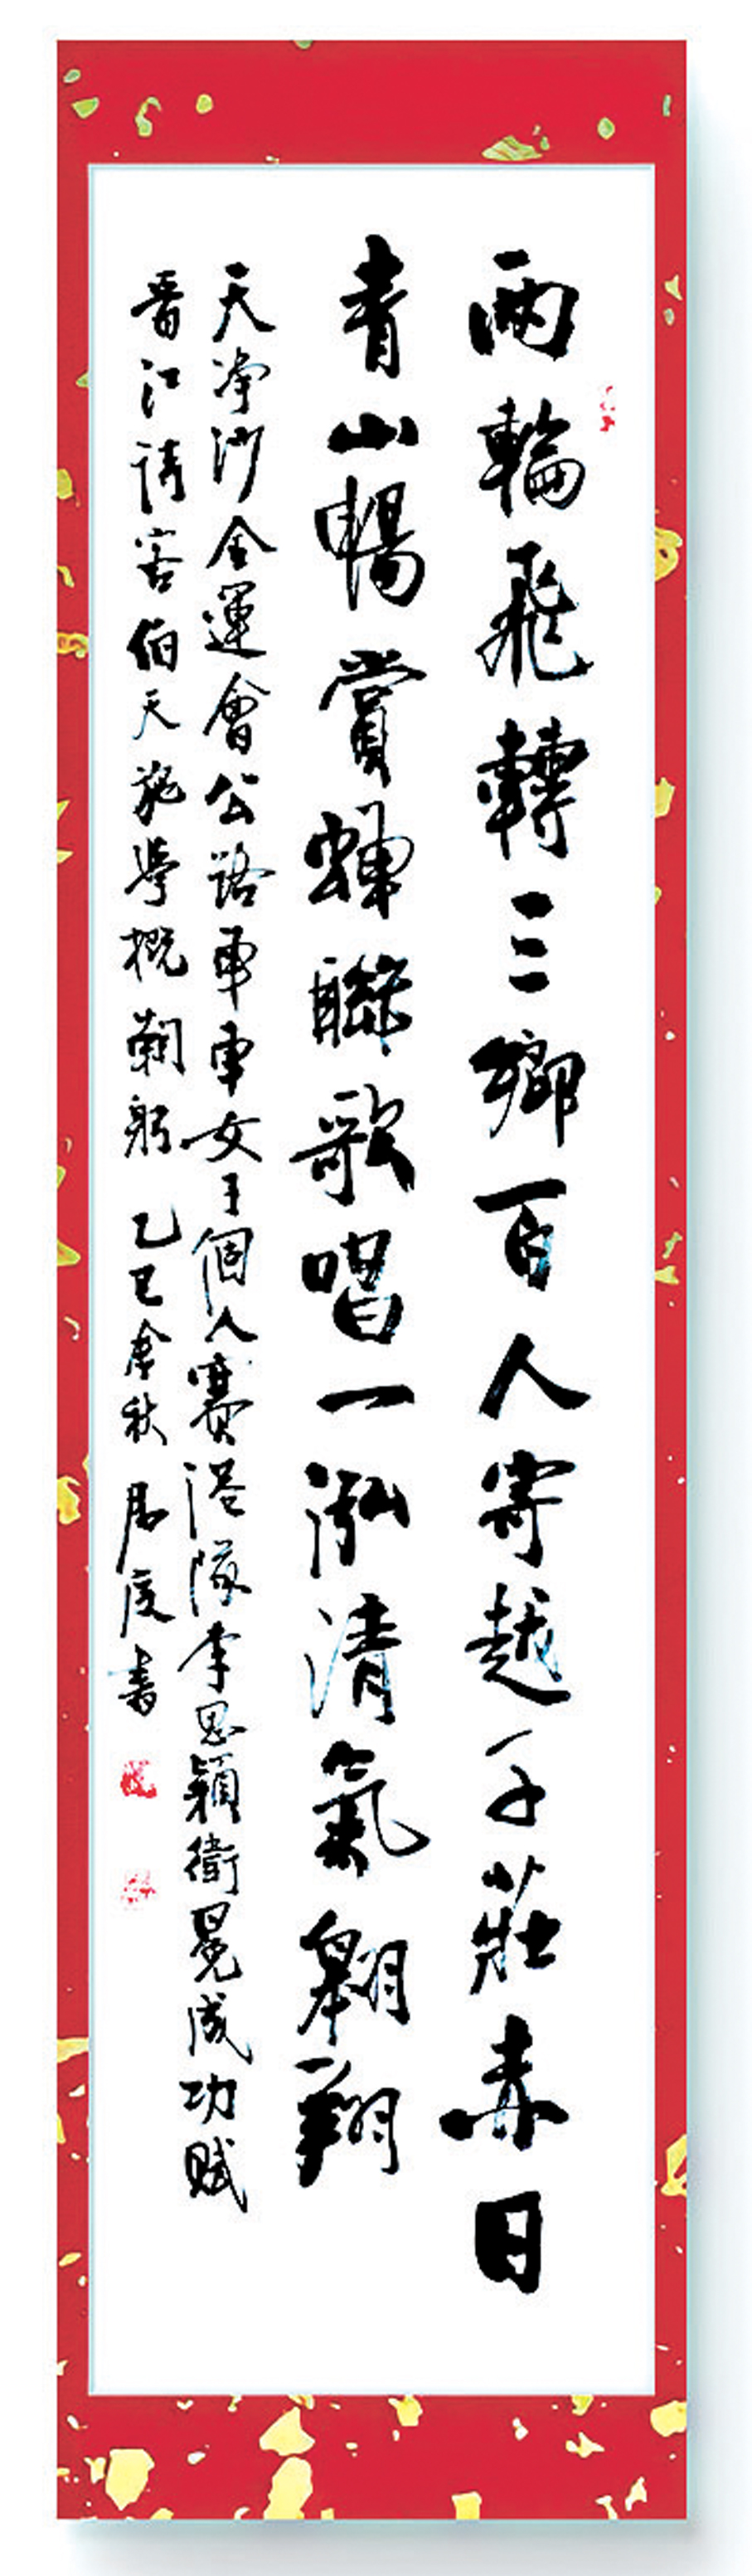 兩輪飛轉三鄉百人寄越千莊赤日
青山暢賞蟬聯歌唱一泓清氣翱翔
天淨沙全運會公路單車女子個人賽港隊李思穎衛冕成功賦
晉江請客伯天施學概鞠躬 乙巳金秋 書